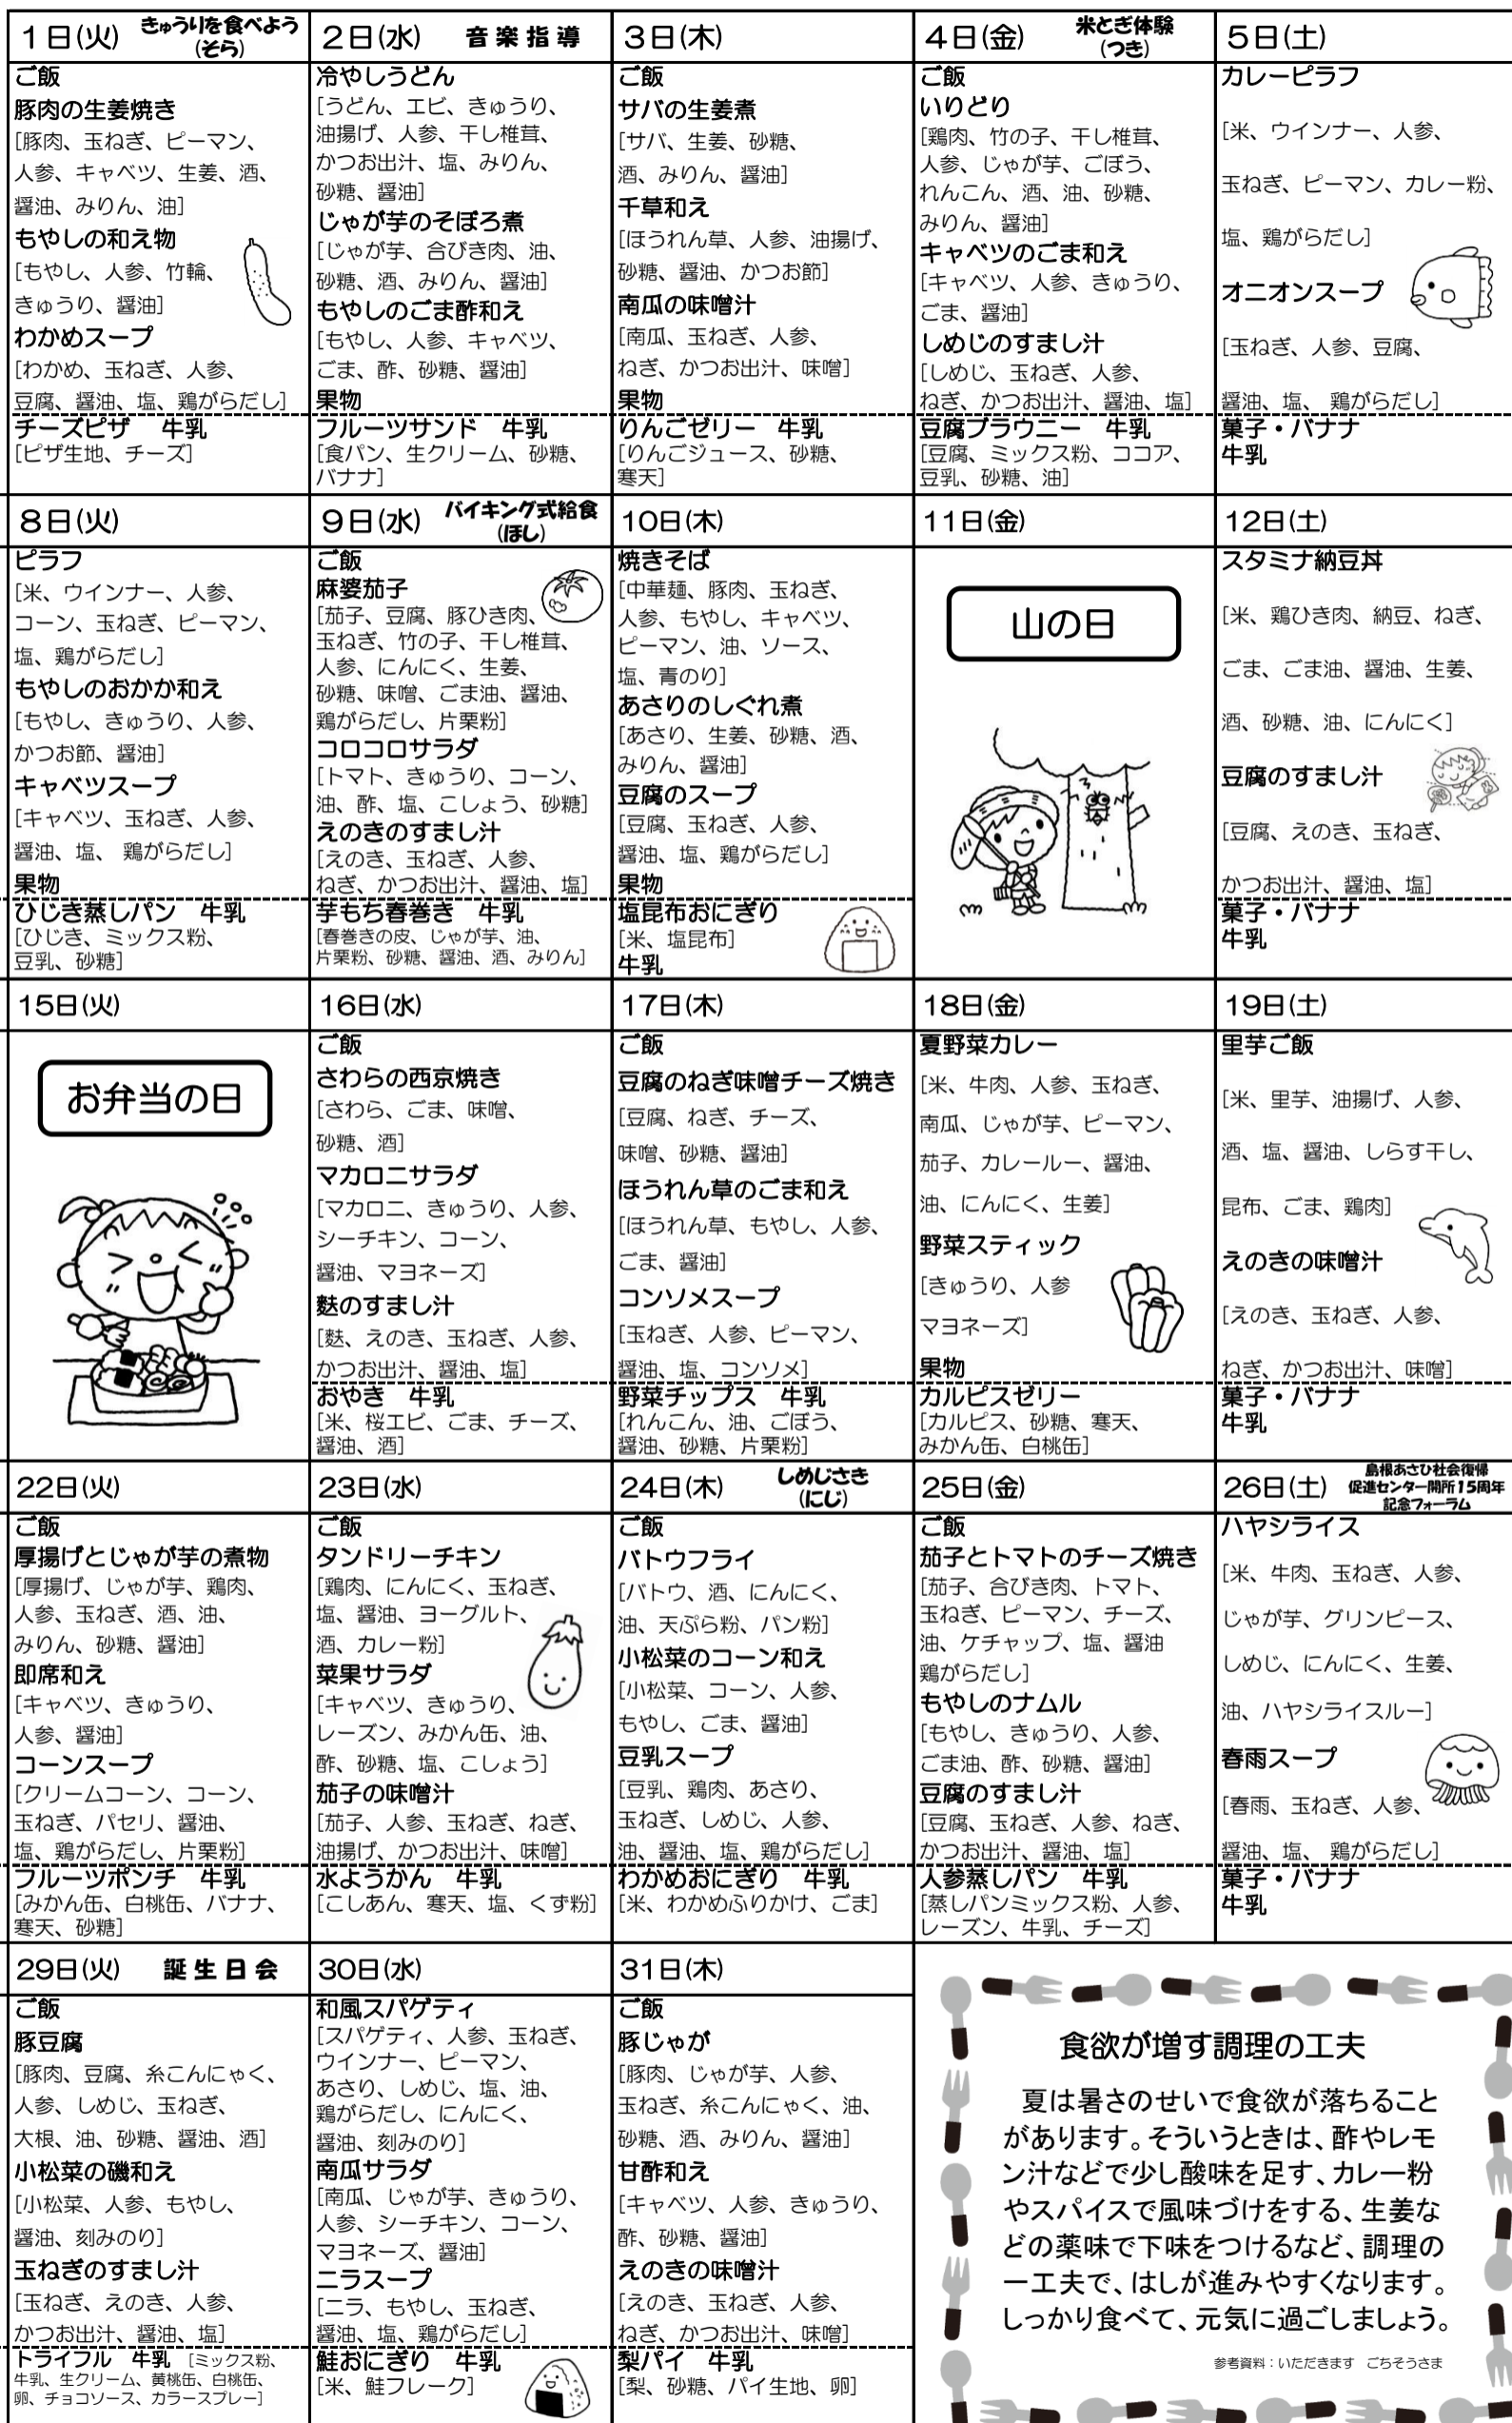 1日(火) きゅうりを食べよう
(そら)
ご飯
豚肉の生姜焼き
[豚肉、玉ねぎ、ピーマン、
人参、キャベツ、生姜、酒、
醤油、みりん、油]
もやしの和え物
[もやし、人参、竹輪、
きゅうり、醤油]
わかめスープ
[わかめ、玉ねぎ、人参、
豆腐、醤油、塩、鶏がらだし]
チーズピザ 牛乳
[ピザ生地、チーズ]
2日(水) 音楽指導
冷やしうどん
[うどん、エビ、きゅうり、
油揚げ、人参、干し椎茸、
かつお出汁、塩、みりん、
砂糖、醤油]
じゃが芋のそぼろ煮
[じゃが芋、合びき肉、油、
砂糖、酒、みりん、醤油]
もやしのごま酢和え
[もやし、人参、キャベツ、
ごま、酢、砂糖、醤油]
果物
フルーツサンド 牛乳
[食パン、生クリーム、砂糖、
バナナ]
3日(木)
ご飯
サバの生姜煮
[サバ、生姜、砂糖、
酒、みりん、醤油]
千草和え
[ほうれん草、人参、油揚げ、
砂糖、醤油、かつお節]
南瓜の味噌汁
[南瓜、玉ねぎ、人参、
ねぎ、かつお出汁、味噌]
果物
りんごゼリー 牛乳
[りんごジュース、砂糖、
寒天]
4日(金) 米とぎ体験
(つき)
ご飯
いりどり
[鶏肉、竹の子、干し椎茸、
人参、じゃが芋、ごぼう、
れんこん、酒、油、砂糖、
みりん、醤油]
キャベツのごま和え
[キャベツ、人参、きゅうり、
ごま、醤油]
しめじのすまし汁
[しめじ、玉ねぎ、人参、
ねぎ、かつお出汁、醤油、塩]
豆腐ブラウニー 牛乳
[豆腐、ミックス粉、ココア、
豆乳、砂糖、油]
5日(土)
カレーピラフ
[米、ウインナー、人参、
玉ねぎ、ピーマン、カレー粉、
塩、鶏がらだし]
オニオンスープ
[玉ねぎ、人参、豆腐、
醤油、塩、 鶏がらだし]
菓子・バナナ
牛乳
8日(火)
ピラフ
[米、ウインナー、人参、
コーン、玉ねぎ、ピーマン、
塩、鶏がらだし]
もやしのおかか和え
[もやし、きゅうり、人参、
かつお節、醤油]
キャベツスープ
[キャベツ、玉ねぎ、人参、
醤油、塩、 鶏がらだし]
果物
ひじき蒸しパン 牛乳
[ひじき、ミックス粉、
豆乳、砂糖]
9日(水) バイキング式給食
(ほし)
ご飯
麻婆茄子
[茄子、豆腐、豚ひき肉、
玉ねぎ、竹の子、干し椎茸、
人参、にんにく、生姜、
砂糖、味噌、ごま油、醤油、
鶏がらだし、片栗粉]
コロコロサラダ
[トマト、きゅうり、コーン、
油、酢、塩、こしょう、砂糖]
えのきのすまし汁
[えのき、玉ねぎ、人参、
ねぎ、かつお出汁、醤油、塩]
芋もち春巻き 牛乳
[春巻きの皮、じゃが芋、油、
片栗粉、砂糖、醤油、酒、みりん]
10日(木)
焼きそば
[中華麺、豚肉、玉ねぎ、
人参、もやし、キャベツ、
ピーマン、油、ソース、
塩、青のり]
あさりのしぐれ煮
[あさり、生姜、砂糖、酒、
みりん、醤油]
豆腐のスープ
[豆腐、玉ねぎ、人参、
醤油、塩、鶏がらだし]
果物
塩昆布おにぎり
[米、塩昆布]
牛乳
11日(金)
山の日
12日(土)
スタミナ納豆丼
[米、鶏ひき肉、納豆、ねぎ、
ごま、ごま油、醤油、生姜、
酒、砂糖、油、にんにく]
豆腐のすまし汁
[豆腐、えのき、玉ねぎ、
かつお出汁、醤油、塩]
菓子・バナナ
牛乳
15日(火)
お弁当の日
16日(水)
ご飯
さわらの西京焼き
[さわら、ごま、味噌、
砂糖、酒]
マカロニサラダ
[マカロニ、きゅうり、人参、
シーチキン、コーン、
醤油、マヨネーズ]
麩のすまし汁
[麩、えのき、玉ねぎ、人参、
かつお出汁、醤油、塩]
おやき 牛乳
[米、桜エビ、ごま、チーズ、
醤油、酒]
17日(木)
ご飯
豆腐のねぎ味噌チーズ焼き
[豆腐、ねぎ、チーズ、
味噌、砂糖、醤油]
ほうれん草のごま和え
[ほうれん草、もやし、人参、
ごま、醤油]
コンソメスープ
[玉ねぎ、人参、ピーマン、
醤油、塩、コンソメ]
野菜チップス 牛乳
[れんこん、油、ごぼう、
醤油、砂糖、片栗粉]
18日(金)
夏野菜カレー
[米、牛肉、人参、玉ねぎ、
南瓜、じゃが芋、ピーマン、
茄子、カレールー、醤油、
油、にんにく、生姜]
野菜スティック
[きゅうり、人参
マヨネーズ]
果物
カルピスゼリー
[カルピス、砂糖、寒天、
みかん缶、白桃缶]
19日(土)
里芋ご飯
[米、里芋、油揚げ、人参、
酒、塩、醤油、しらす干し、
昆布、ごま、鶏肉]
えのきの味噌汁
[えのき、玉ねぎ、人参、
ねぎ、かつお出汁、味噌]
菓子・バナナ
牛乳
22日(火)
ご飯
厚揚げとじゃが芋の煮物
[厚揚げ、じゃが芋、鶏肉、
人参、玉ねぎ、酒、油、
みりん、砂糖、醤油]
即席和え
[キャベツ、きゅうり、
人参、醤油]
コーンスープ
[クリームコーン、コーン、
玉ねぎ、パセリ、醤油、
塩、鶏がらだし、片栗粉]
フルーツポンチ 牛乳
[みかん缶、白桃缶、バナナ、
寒天、砂糖]
23日(水)
ご飯
タンドリーチキン
[鶏肉、にんにく、玉ねぎ、
塩、醤油、ヨーグルト、
酒、カレー粉]
菜果サラダ
[キャベツ、きゅうり、
レーズン、みかん缶、油、
酢、砂糖、塩、こしょう]
茄子の味噌汁
[茄子、人参、玉ねぎ、ねぎ、
油揚げ、かつお出汁、味噌]
水ようかん 牛乳
[こしあん、寒天、塩、くず粉]
24日(木) しめじさき
(にじ)
ご飯
バトウフライ
[バトウ、酒、にんにく、
油、天ぷら粉、パン粉]
小松菜のコーン和え
[小松菜、コーン、人参、
もやし、ごま、醤油]
豆乳スープ
[豆乳、鶏肉、あさり、
玉ねぎ、しめじ、人参、
油、醤油、塩、鶏がらだし]
わかめおにぎり 牛乳
[米、わかめふりかけ、ごま]
25日(金)
ご飯
茄子とトマトのチーズ焼き
[茄子、合びき肉、トマト、
玉ねぎ、ピーマン、チーズ、
油、ケチャップ、塩、醤油
鶏がらだし]
もやしのナムル
[もやし、きゅうり、人参、
ごま油、酢、砂糖、醤油]
豆腐のすまし汁
[豆腐、玉ねぎ、人参、ねぎ、
かつお出汁、醤油、塩]
人参蒸しパン 牛乳
[蒸しパンミックス粉、人参、
レーズン、牛乳、チーズ]
26日(土) 島根あさひ社会復帰
促進センター開所15周年
記念フォーラム
ハヤシライス
[米、牛肉、玉ねぎ、人参、
じゃが芋、グリンピース、
しめじ、にんにく、生姜、
油、ハヤシライスルー]
春雨スープ
[春雨、玉ねぎ、人参、
醤油、塩、 鶏がらだし]
菓子・バナナ
牛乳
29日(火) 誕生日会
ご飯
豚豆腐
[豚肉、豆腐、糸こんにゃく、
人参、しめじ、玉ねぎ、
大根、油、砂糖、醤油、酒]
小松菜の磯和え
[小松菜、人参、もやし、
醤油、刻みのり]
玉ねぎのすまし汁
[玉ねぎ、えのき、人参、
かつお出汁、醤油、塩]
トライフル 牛乳 [ミックス粉、
牛乳、生クリーム、黄桃缶、白桃缶、
卵、チョコソース、カラースプレー]
30日(水)
和風スパゲティ
[スパゲティ、人参、玉ねぎ、
ウインナー、ピーマン、
あさり、しめじ、塩、油、
鶏がらだし、にんにく、
醤油、刻みのり]
南瓜サラダ
[南瓜、じゃが芋、きゅうり、
人参、シーチキン、コーン、
マヨネーズ、醤油]
ニラスープ
[ニラ、もやし、玉ねぎ、
醤油、塩、鶏がらだし]
鮭おにぎり 牛乳
[米、鮭フレーク]
31日(木)
ご飯
豚じゃが
[豚肉、じゃが芋、人参、
玉ねぎ、糸こんにゃく、油、
砂糖、酒、みりん、醤油]
甘酢和え
[キャベツ、人参、きゅうり、
酢、砂糖、醤油]
えのきの味噌汁
[えのき、玉ねぎ、人参、
ねぎ、かつお出汁、味噌]
梨パイ 牛乳
[梨、砂糖、パイ生地、卵]
食欲が増す調理の工夫
夏は暑さのせいで食欲が落ちること
があります。そういうときは、酢やレモ
ン汁などで少し酸味を足す、カレー粉
やスパイスで風味づけをする、生姜な
どの薬味で下味をつけるなど、調理の
一工夫で、はしが進みやすくなります。
しっかり食べて、元気に過ごしましょう。
参考資料：いただきます ごちそうさま